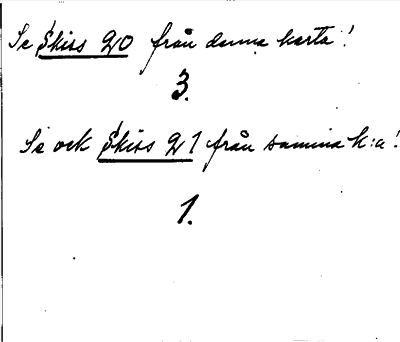 Se Skiss 20 från denna karta!
3.
Se ock Skiss 21 från samma k:a!
1.